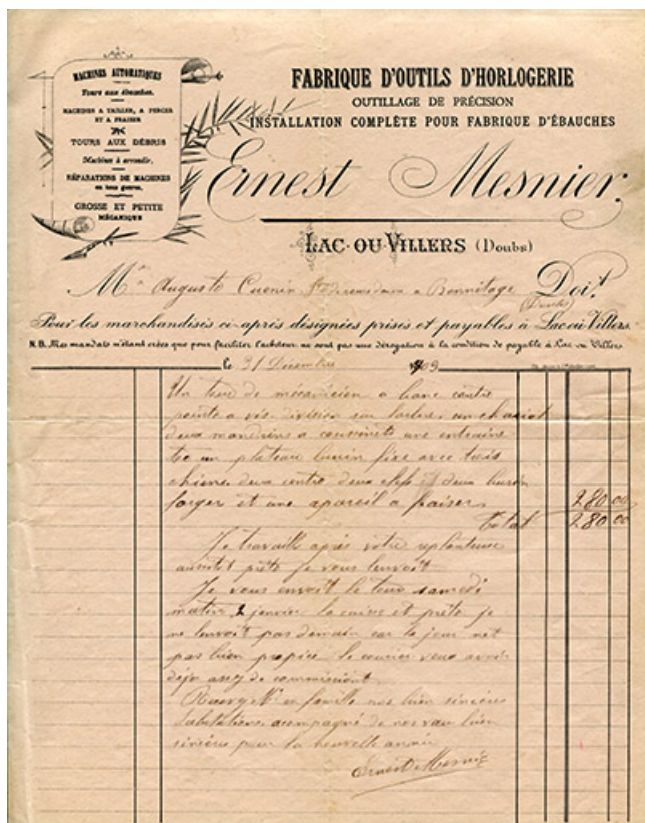 MACHINES AUTOMATIQUES
Tours aux ébauches.
MACHINES A TAILLER, A PERCER
ET A FRAISER
TOURS AUX DÉBRIS
Machine à arrondir.
RÉPARATIONS DE MACHINES
en tous genres.
GROSSE ET PETITE
MÉCANIQUE
FABRIQUE D'OUTILS D'HORLOGERIE
OUTILLAGE DE PRÉCISION
INSTALLATION COMPLÈTE POUR FABRIQUE D'ÉBAUCHES
Ernest Mesnier,
LAC-OU-VILLERS (Doubs)
M Auguste Cuenin a Bonnétage Doit
(Doubs)
Pour les marchandises ci-après désignées prises et payables à Lac ou Villers.
N.B. Mes mandats n'étant créés que pour faciliter l'acheteur ne sont pas une dérogation à la condition de payable à Lac ou Villers
le 31 Décembre 1909
Un tour de mécanicien a banc contre
pointe a vis division sur un chariot
deux mandrins a coussinets une
un plateau burin fixe avec trois
chiens deux deux clefs et deux burin
forger et une apareil a fraiser 280.00
Total 280.00
Je travaille après votre
aussitôt prête Je vous lenvoit
Je vous envoit le tour samedi
matin 2 janvier la caisse et prête je
ne lenvoit pas demain car le jour net
pas bien propice le courier veux avoir
déja assez de commissiont
Recevez Mr et famille nos bien sincères
Salutations acompagné de nos vœu bien
sincère pour la nouvelle année
Ernest Mesnier